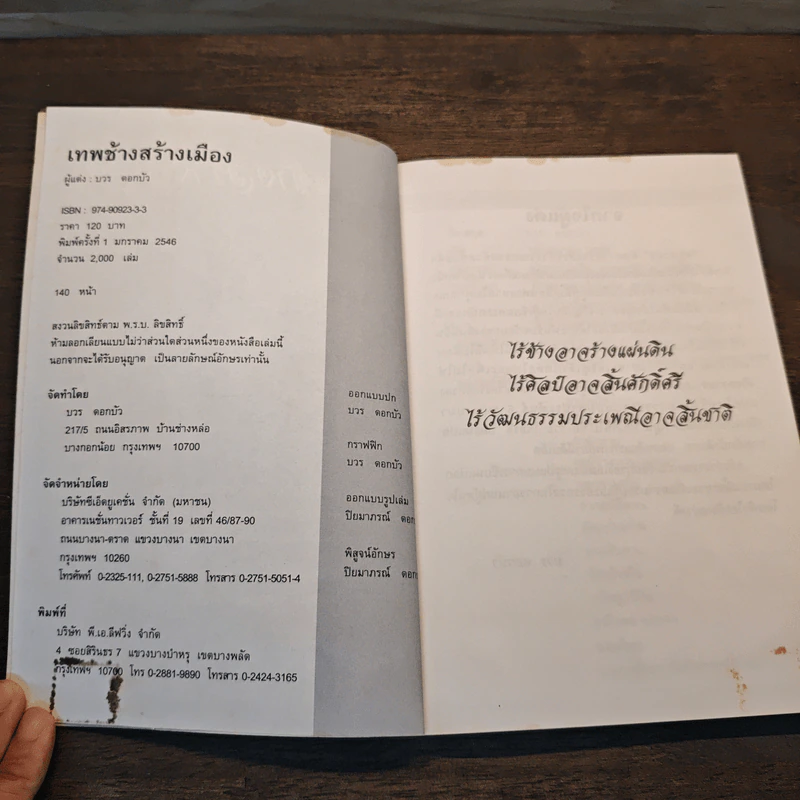 เทพช้างสร้างเมือง
ผู้แต่ง : บวร ดอกบัว
ISBN : 974-90923-3-3
ราคา 120 บาท
พิมพ์ครั้งที่ 1 มกราคม 2546
จำนวน 2,000 เล่ม
140 หน้า
สงวนลิขสิทธิ์ตาม พ.ร.บ. ลิขสิทธิ์
ห้ามลอกเลียนแบบไม่ว่าส่วนใดส่วนหนึ่งของหนังสือเล่มนี้
นอกจากจะได้รับอนุญาต เป็นลายลักษณ์อักษรเท่านั้น
จัดทำโดย
บวร ดอกบัว
217/5 ถนนอิสรภาพ บ้านช่างหล่อ
บางกอกน้อย กรุงเทพฯ 10700
จัดจำหน่ายโดย
บริษัทซีเอ็ดยูเคชั่น จำกัด (มหาชน)
อาคารเนชั่นทาวเวอร์ ชั้นที่ 19 เลขที่ 46/87-90
ถนนบางนา-ตราด แขวงบางนา เขตบางนา
กรุงเทพฯ 10260
โทรศัพท์ 0-2325-111, 0-2751-5888 โทรสาร 0-2751-5051-4
พิมพ์ที่
บริษัท พี.เอ.ลีฟวิ่ง จำกัด
4 ซอยสิรินธร 7 แขวงบางบำหรุ เขตบางพลัด
กรุงเทพฯ 10700 โทร 0-2881-9890 โทรสาร 0-2424-3165
ออกแบบปก
บวร ดอกบัว
กราฟฟิก
บวร ดอกบัว
ออกแบบรูปเล่ม
ปิยมาภรณ์ ดอก
พิสูจน์อักษร
ปิยมาภรณ์ ดอก
ไร้ช้างอาจร้างแผ่นดิน
ไร้ศิลป์อาจสิ้นศักดิ์ศรี
ไร้วัฒนธรรมประเพณีอาจสิ้นชาติ